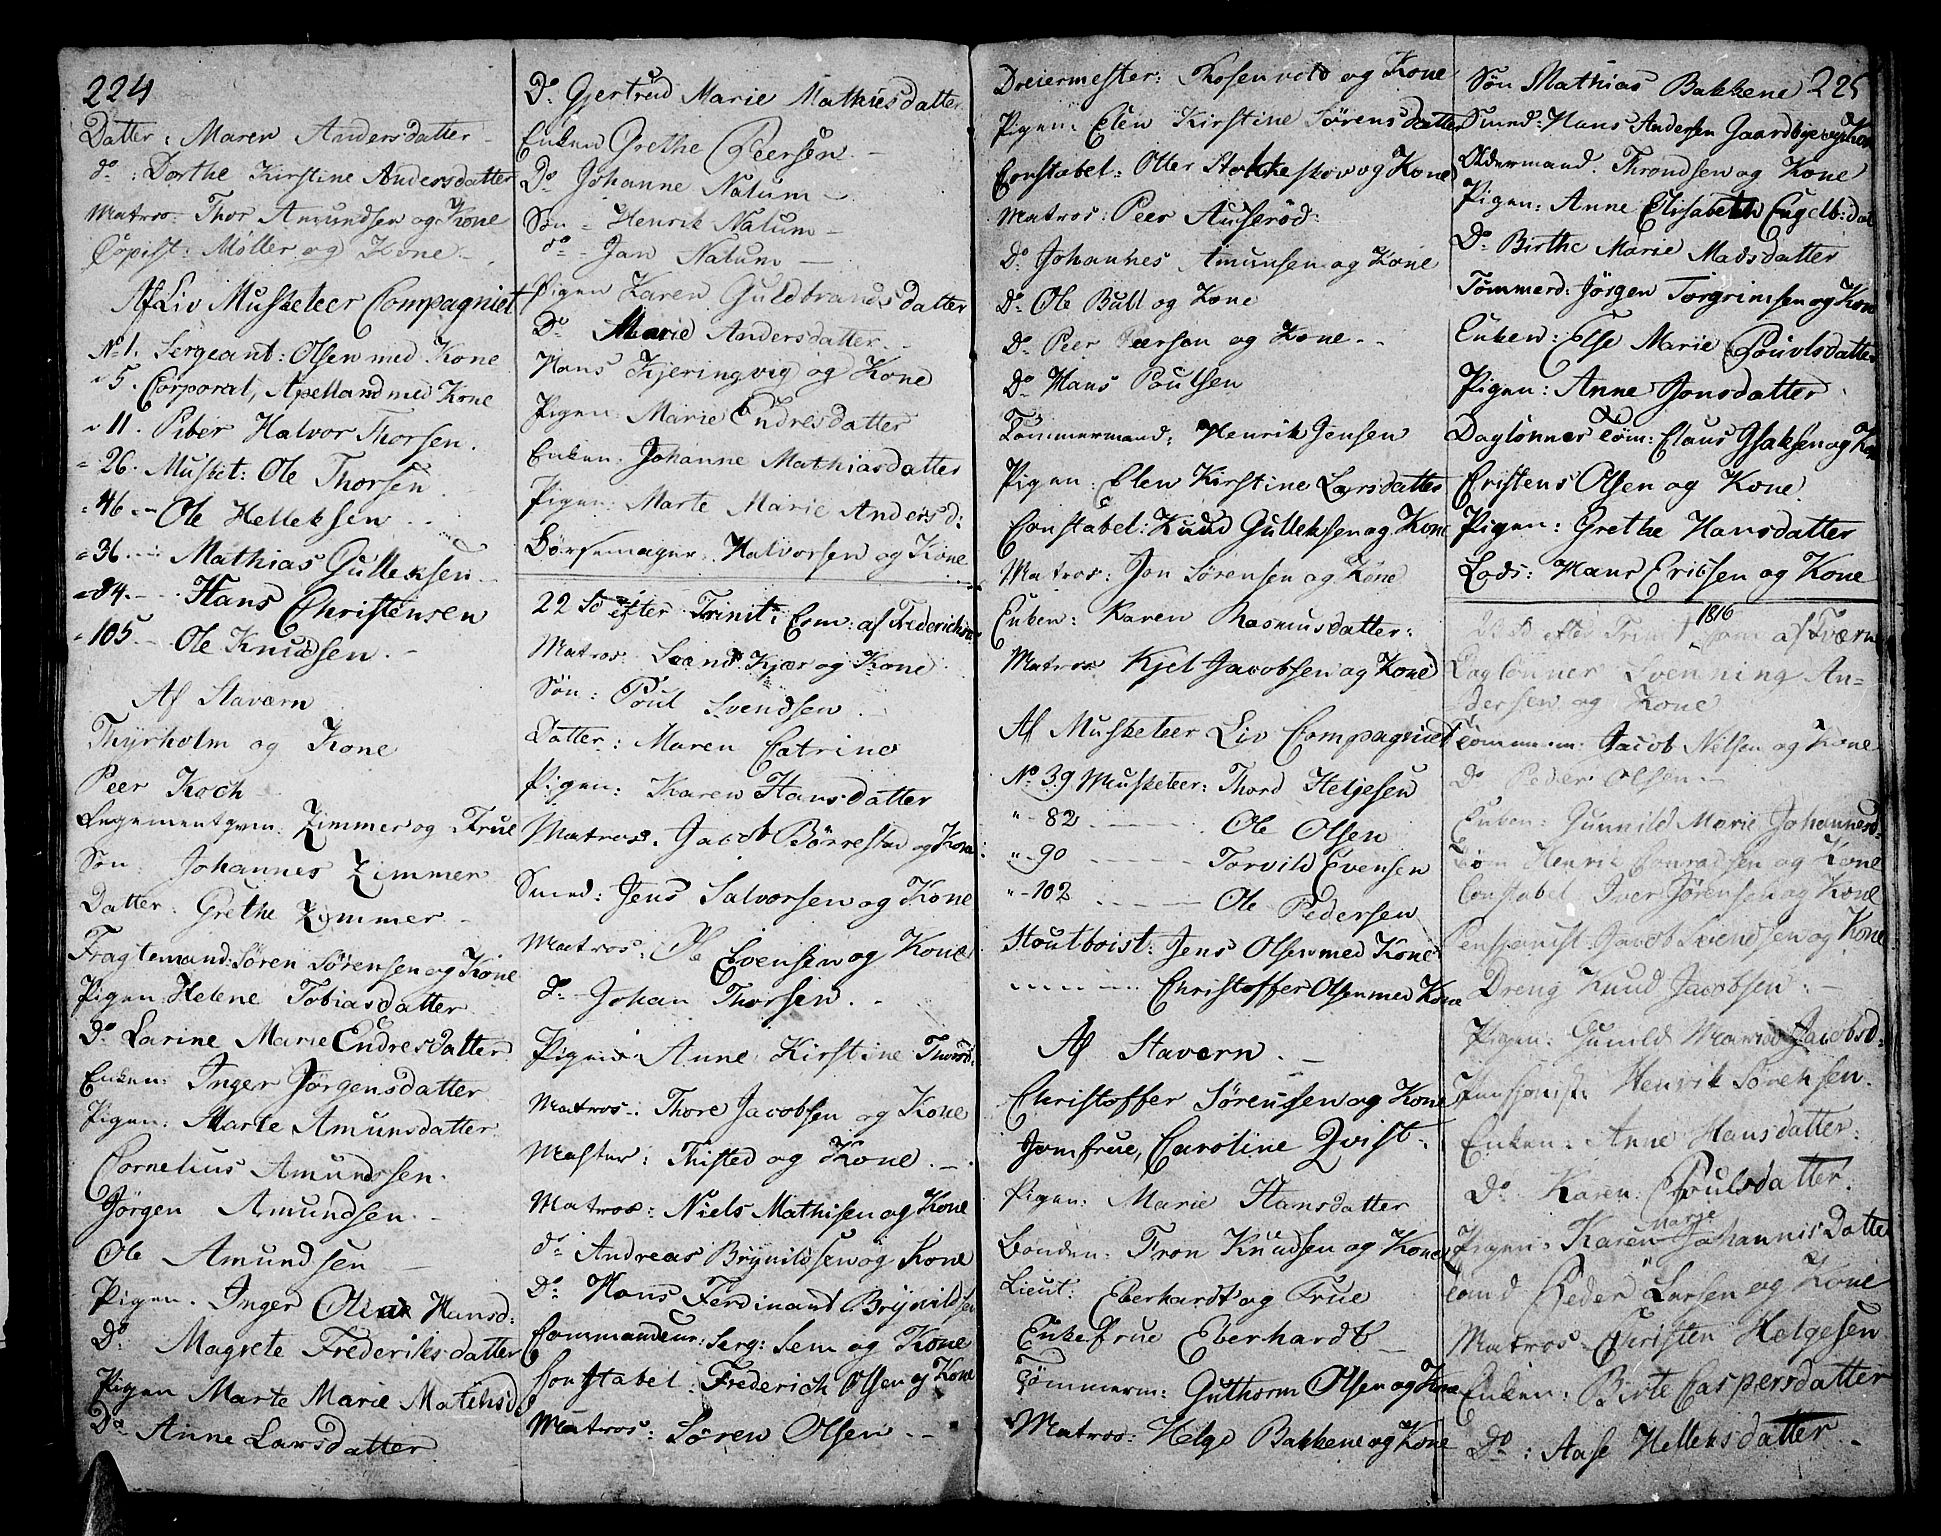 224
Datter: Maren Andersdatter
do: Dorthe Kirstine Andersdatter
Matros: Thor Amundsen og Kone
Møller og Kone
Af Liv Musketeer Compagniet
No 1. Sergeant: Olsen med Kone
" 5. Corporal, Apelland med Kone
" 11. Piber Halvor Thorsen.
" 26. Musket: Ole Thorsen
" 46. Ole Helleksen
" 36. Mathias Gulleksen
" 84. Hans Christensen
" 105. Ole Knudsen.
Af Stavern
Thyrholm og Kone
Peer Koch
Zimmer og Frue
Søn: Johannes Zimmer
Datter: Grethe Zimmer
Fragtemand: Søren Sørensen og Kone
Pigen: Helene Tobiasdatter
Do Larine Marie Endresdatter
Enken: Inger Jørgensdatter
Pigen: Marte Amunsdatter
Cornelius Amundssen.
Jørgen Amundsen.
Ole Amundsen
Pigen. Inger Hansd:
Do Magrete Frederiksdatter
Pigen Marte Marie
Do Anne Larsdatter
Do Gjertrud Marie Mathiesdatter
Enken Grethe Peersen.
Do Johanne Nalum
Søn Henrik Nalum
do Jan Nalum
Pigen Karen Guldbrandsdatter
Do Marie Andersdatter
Hans Kjeringvig og Kone
Pigen: Marie Endresdatter
Enken: Johanne Mathiasdatter
Pigen: Marte Marie Andersd:
Børsemager: Halvorsen og Kone
22 S efter Trinit: Com: af
Matros: Svend Kjær og Kone
Søn: Poul Svendsen
Datter: Maren Catrine
Pigen: Karen Hansdatter
Matros. Jacob Børrestad og Kone
Smed: Jens Salvorsen og Kone
Matros: Ole Evensen og Kone
do Johan Thorsen.
Pigen: Anne Kirstine Thorsd:
Matros: Thore Jacobsen og Kone
Mester: Thisted og Kone
Matros: Niels Mathisen og Kone
do Andreas Brynildsen og Kone
Do Hans Ferdinant Brynildsen
Commandeur: Serg: Sem og Kone
Constabel: Frederich Olsen og Kone
Matros: Søren Olsen
Dreiermester: Rosenvold og Kone
Pigen: Elen Kirstine Sørensdatter
Constabel: Otter og Kone
Matros: Peer Auserød
Do Johannes Amunsen og Kone
Do Ole Bull og Kone
Do Peer Peersen og Kone
Do Hans Poulsen
Tømmermand: Henrik Jensen
Pigen: Elen Kirstine Larsdatter
Constabel: Knud Gulleksen og Kone
Matros: Jon Sørensen og Kone
Enken: Karen Rasmusdatter:
Matros Kjel Jacobsen og Kone
Af Musketeer Liv Compagniet
No 39 Musketeer: Thord Helgesen
" 82 Ole Olsen
" 90 Torvild Evensen
" 102 Ole Pedersen
Houtboist: Jens Olsen med Kone
Christoffer Olsen med Kone
Af Stavern.
Christoffer Sørensen og Kone
Jomfrue, Caroline Qvist.
Pigen: Marie Hansdatter
Bonden: Tron Knudsen og Kone
Lieut: Eberhardt og Frue
Enkefrue Eberhardt
Tømmerm: Guthorm Olsen og Kone
Matros: Helge Bakkene og Kone
Søn Mathias Bakkene 225
Smed: Hans Andersen Gaardbye og Kone
Oldermand: Throndsen og Kone
Pigen: Anne Elisabeth Engelb: dat
Do Birthe Marie Madsdatter
Tømmerd: Jørgen Torgrimsen og Kone
Enken: Else Marie Poulsdatter
Pigen: Anne Jonsdatter
Daglønner Tøm: Claus Isaksen og Kone
Cristens Olsen og Kone.
Pigen: Grethe Hansdatter
Lods: Hans Ericsen og Kone
1816
23 S efter Trinit Com af Tværne
Daglønner Svenning An=
dersen og Kone
Tømmerm: Jacob Nilsen og Kone
Do Peder Olsen
Enken: Gunnild Marie Johannesd:
Tøm Henrik Conradsen og Kone
Constabel Iver Jørensen og Kone
Pensjonist Jacob Svendsen og Kone
Dreng Knud Jacobsen:
Pigen: Gunild Marie Jacobsd:
Pensjonist: Henrik Sørensen.
Enken: Anne Hansdatter:
Do Karen Poulsdatter.
Pigen: Karen Marie Johannisdatter
Peder Larsen og Kone
Matros Christen Helgesen
Enken: Birte Caspersdatter
Do: Aase Helleksdatter